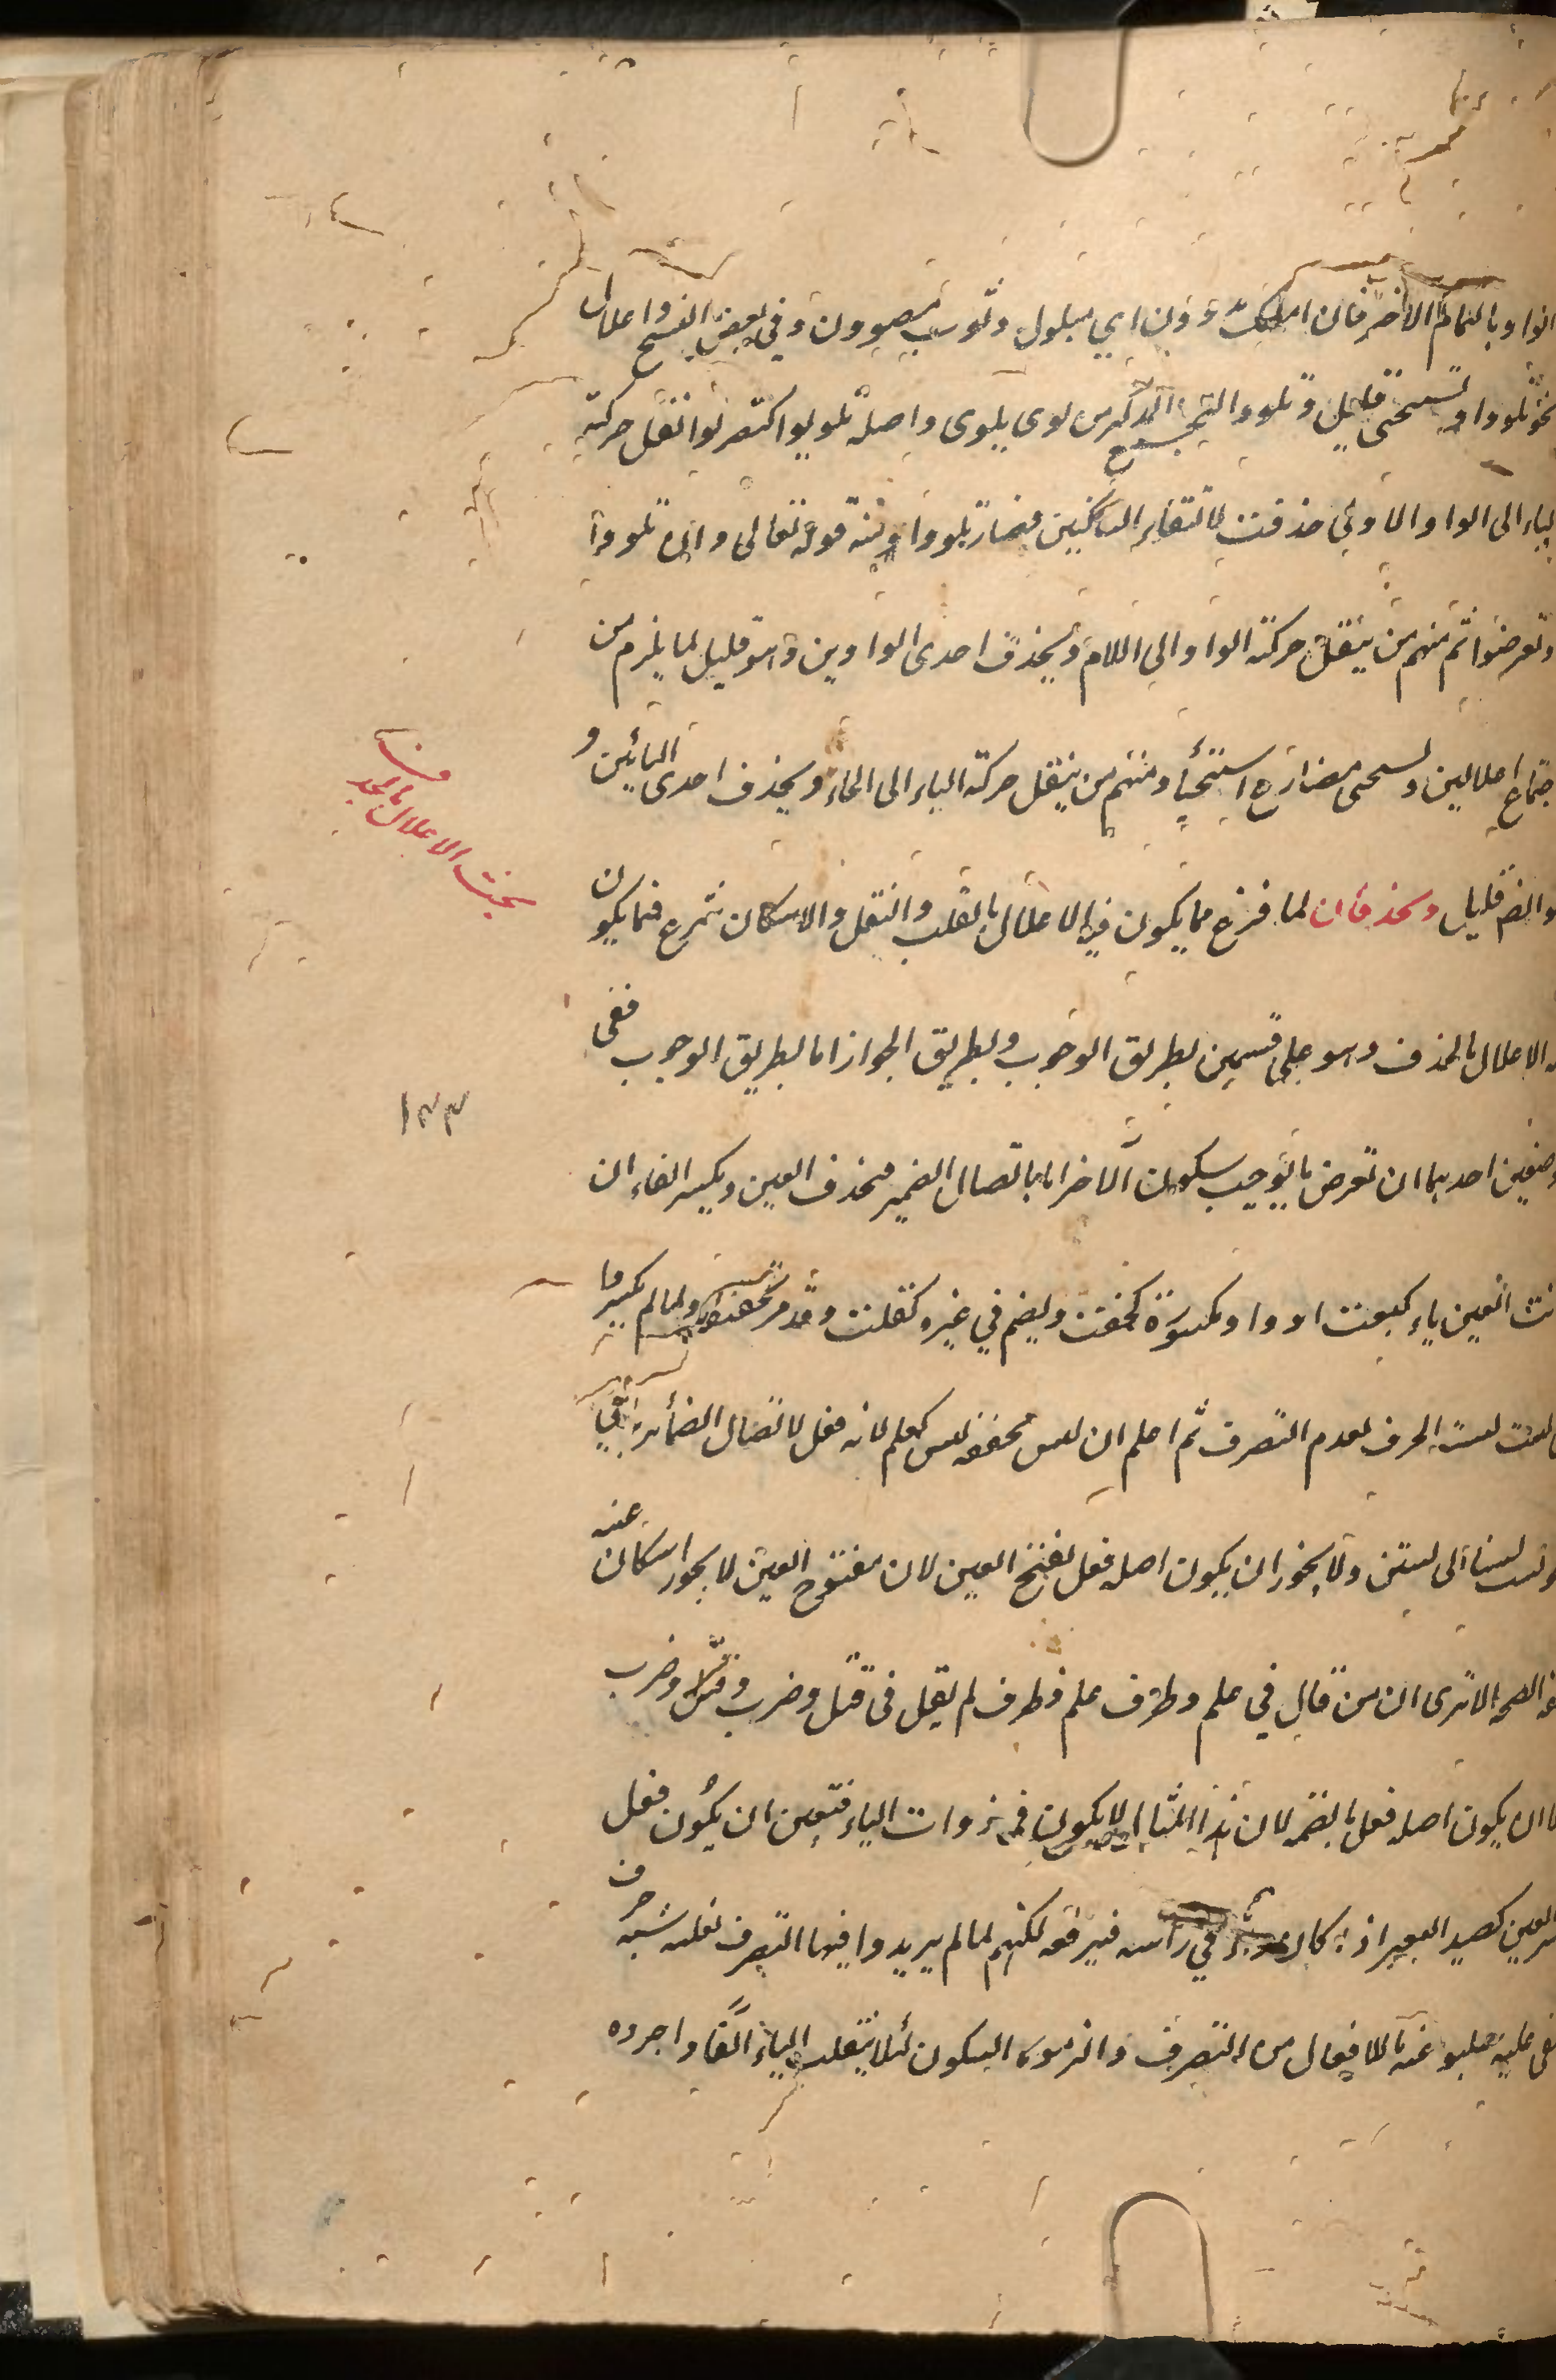 الواو بالتمام الاخر فان مسك مدووف اي مبلول وثوب مصوون وفي بعض النسخ واعلال
نحو تلووا ويستحيى قليل وتلووا لجمع المذكر من لوى يلوى واصله تلويوا كتضربوا نقل حركة
الياء الى الواو الاولى حذفت لالتقاء الساكنين فصار تلووا ومنه قوله تعالى وان تلووا
وتعرضوا ثم منهم من ينقل حركة الواو الى اللام ويحذف احدى الواوين وهو قليل لما يلزم من
اجتماع اعلالين ويستحيى مضارع استحيى ومنهم من ينقل حركة الياء الى الحاء ويحذف احدى اليائين و
هو ايضا قليل ويحذفان لما فرغ مما يكون فيه الاعلال بالقلب والنقل والاسكان شرع فيما يكون
فيه الاعلال بالحذف وهو على قسمين بطريق الوجوب وبطريق الجواز اما بطريق الوجوب ففى
موضعين احدهما ان تعرض ما يوجب سكون الآخر اما باتصال الضمير فيحذف العين ويكسر الفاء ان
كانت العين ياء كبعت او واو مكسورة كخفت ويضم في غيره كقلت وقد مر تحقيقه ولما لم يكسروا
في لست لشبه الحرف لعدم التصرف ثم اعلم ان ليس مخففه ليس كعلم لانه فعل لاتصال الضمائر في
ولست لسنا الى لستن ولا يجوز ان يكون اصله فعل بفتح العين لان مفتوح العين لا يجوز اسكان عينه
الا ترى ان من قال في علم وظرف علم وظرف لم يقل في قتل وضرب وقتل وضرب
ولا ان يكون اصله فعل بالضم لان هذا المثال لا يكون في ذوات الياء فتعين ان يكون فعل
بكسر العين كصيد البعير اذا كان به في رأسه فيرفعه لكنهم لما لم يريدوا فيها التصرف لغلبه شبه حرف
النفى عليه سلبوا عنه ما للافعال من التصرف والزموه السكون لئلا ينقلب الياء الفا واجروه
بحث الاعلال بالحذف
١٣٣